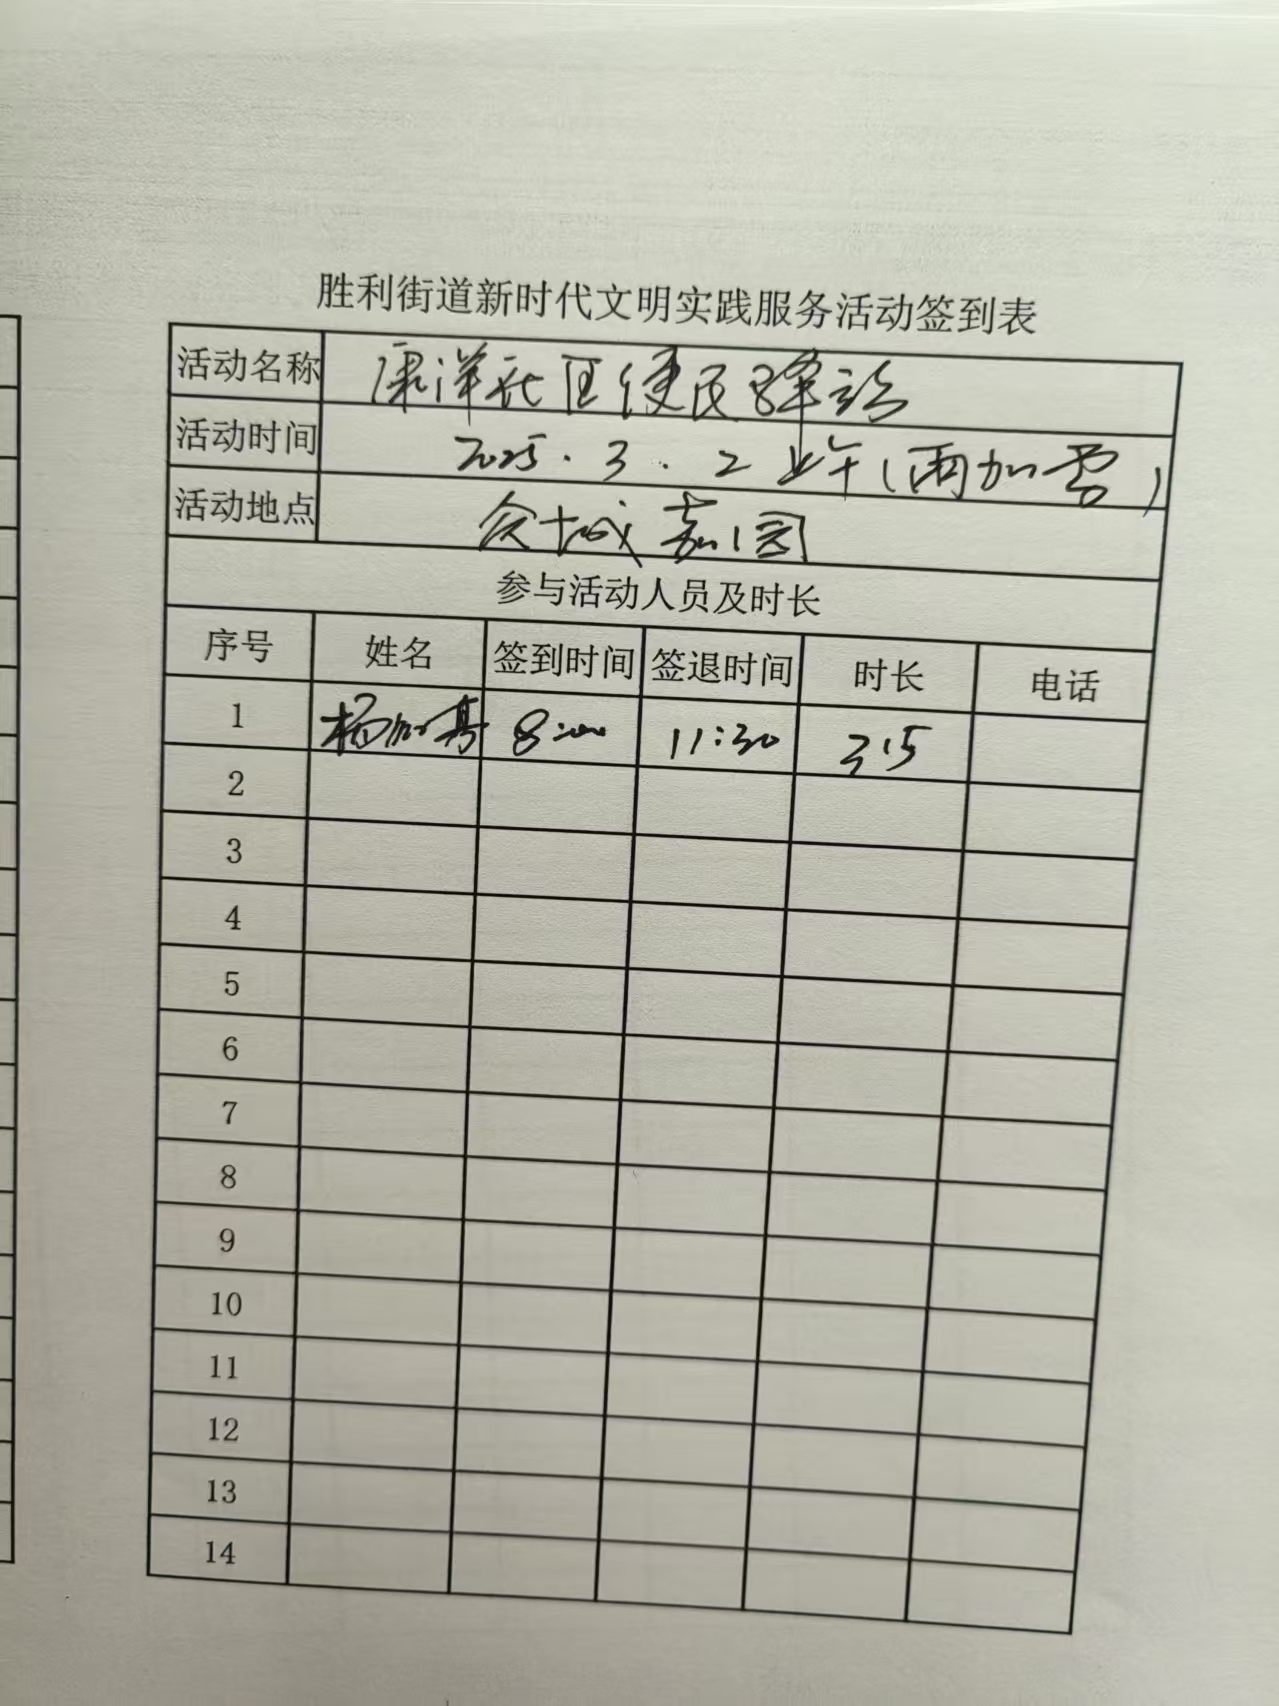 胜利街道新时代文明实践服务活动签到表
活动名称 康洋社区便民驿站
活动时间 2025.3.2 上午(雨加雪)
活动地点 众城嘉园
参与活动人员及时长
序号 姓名 签到时间 签退时间 时长 电话
1 杨 8:00 11:30 3.5
2
3
4
5
6
7
8
9
10
11
12
13
14